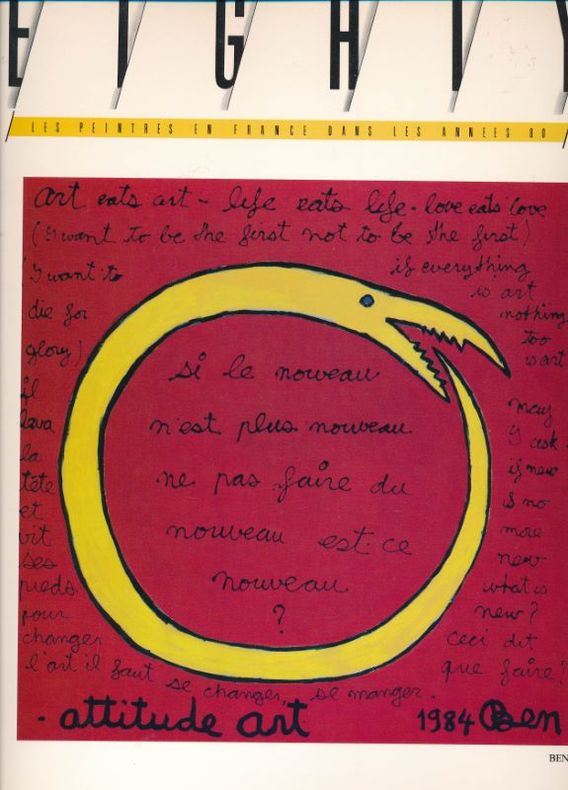 EIGHTY
LES PEINTRES EN FRANCE DANS LES ANNEES 80
art eats art - life eats life - love eats love
(I want to be the first not to be the first)
(I want to
die for
glory)
if everything
is art
nothing
too
is art
il
lava
la
tête
et
vit
ses
pieds
pour
changer
l'art il faut
se changer, se manger.
si le nouveau
n'est plus nouveau
ne pas faire du
nouveau est-ce
nouveau
?
may
I ask
if new
is no
more
new
what is
new?
ceci dit
que faire?
- attitude art
1984 Ben
BEN